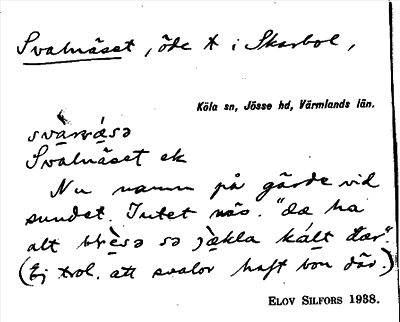 Svalnäset, öde t i Skarbol,
Köla sn, Jösse hd, Värmlands län.
Svalnäset ek
Nu namn på gärde vid
sundet. Intet näs. "dæ ha
alt blèsə sə jàkla kált dær".
(Ej trol. att svalor haft bon där.)
ELOV SILFORS 1938.